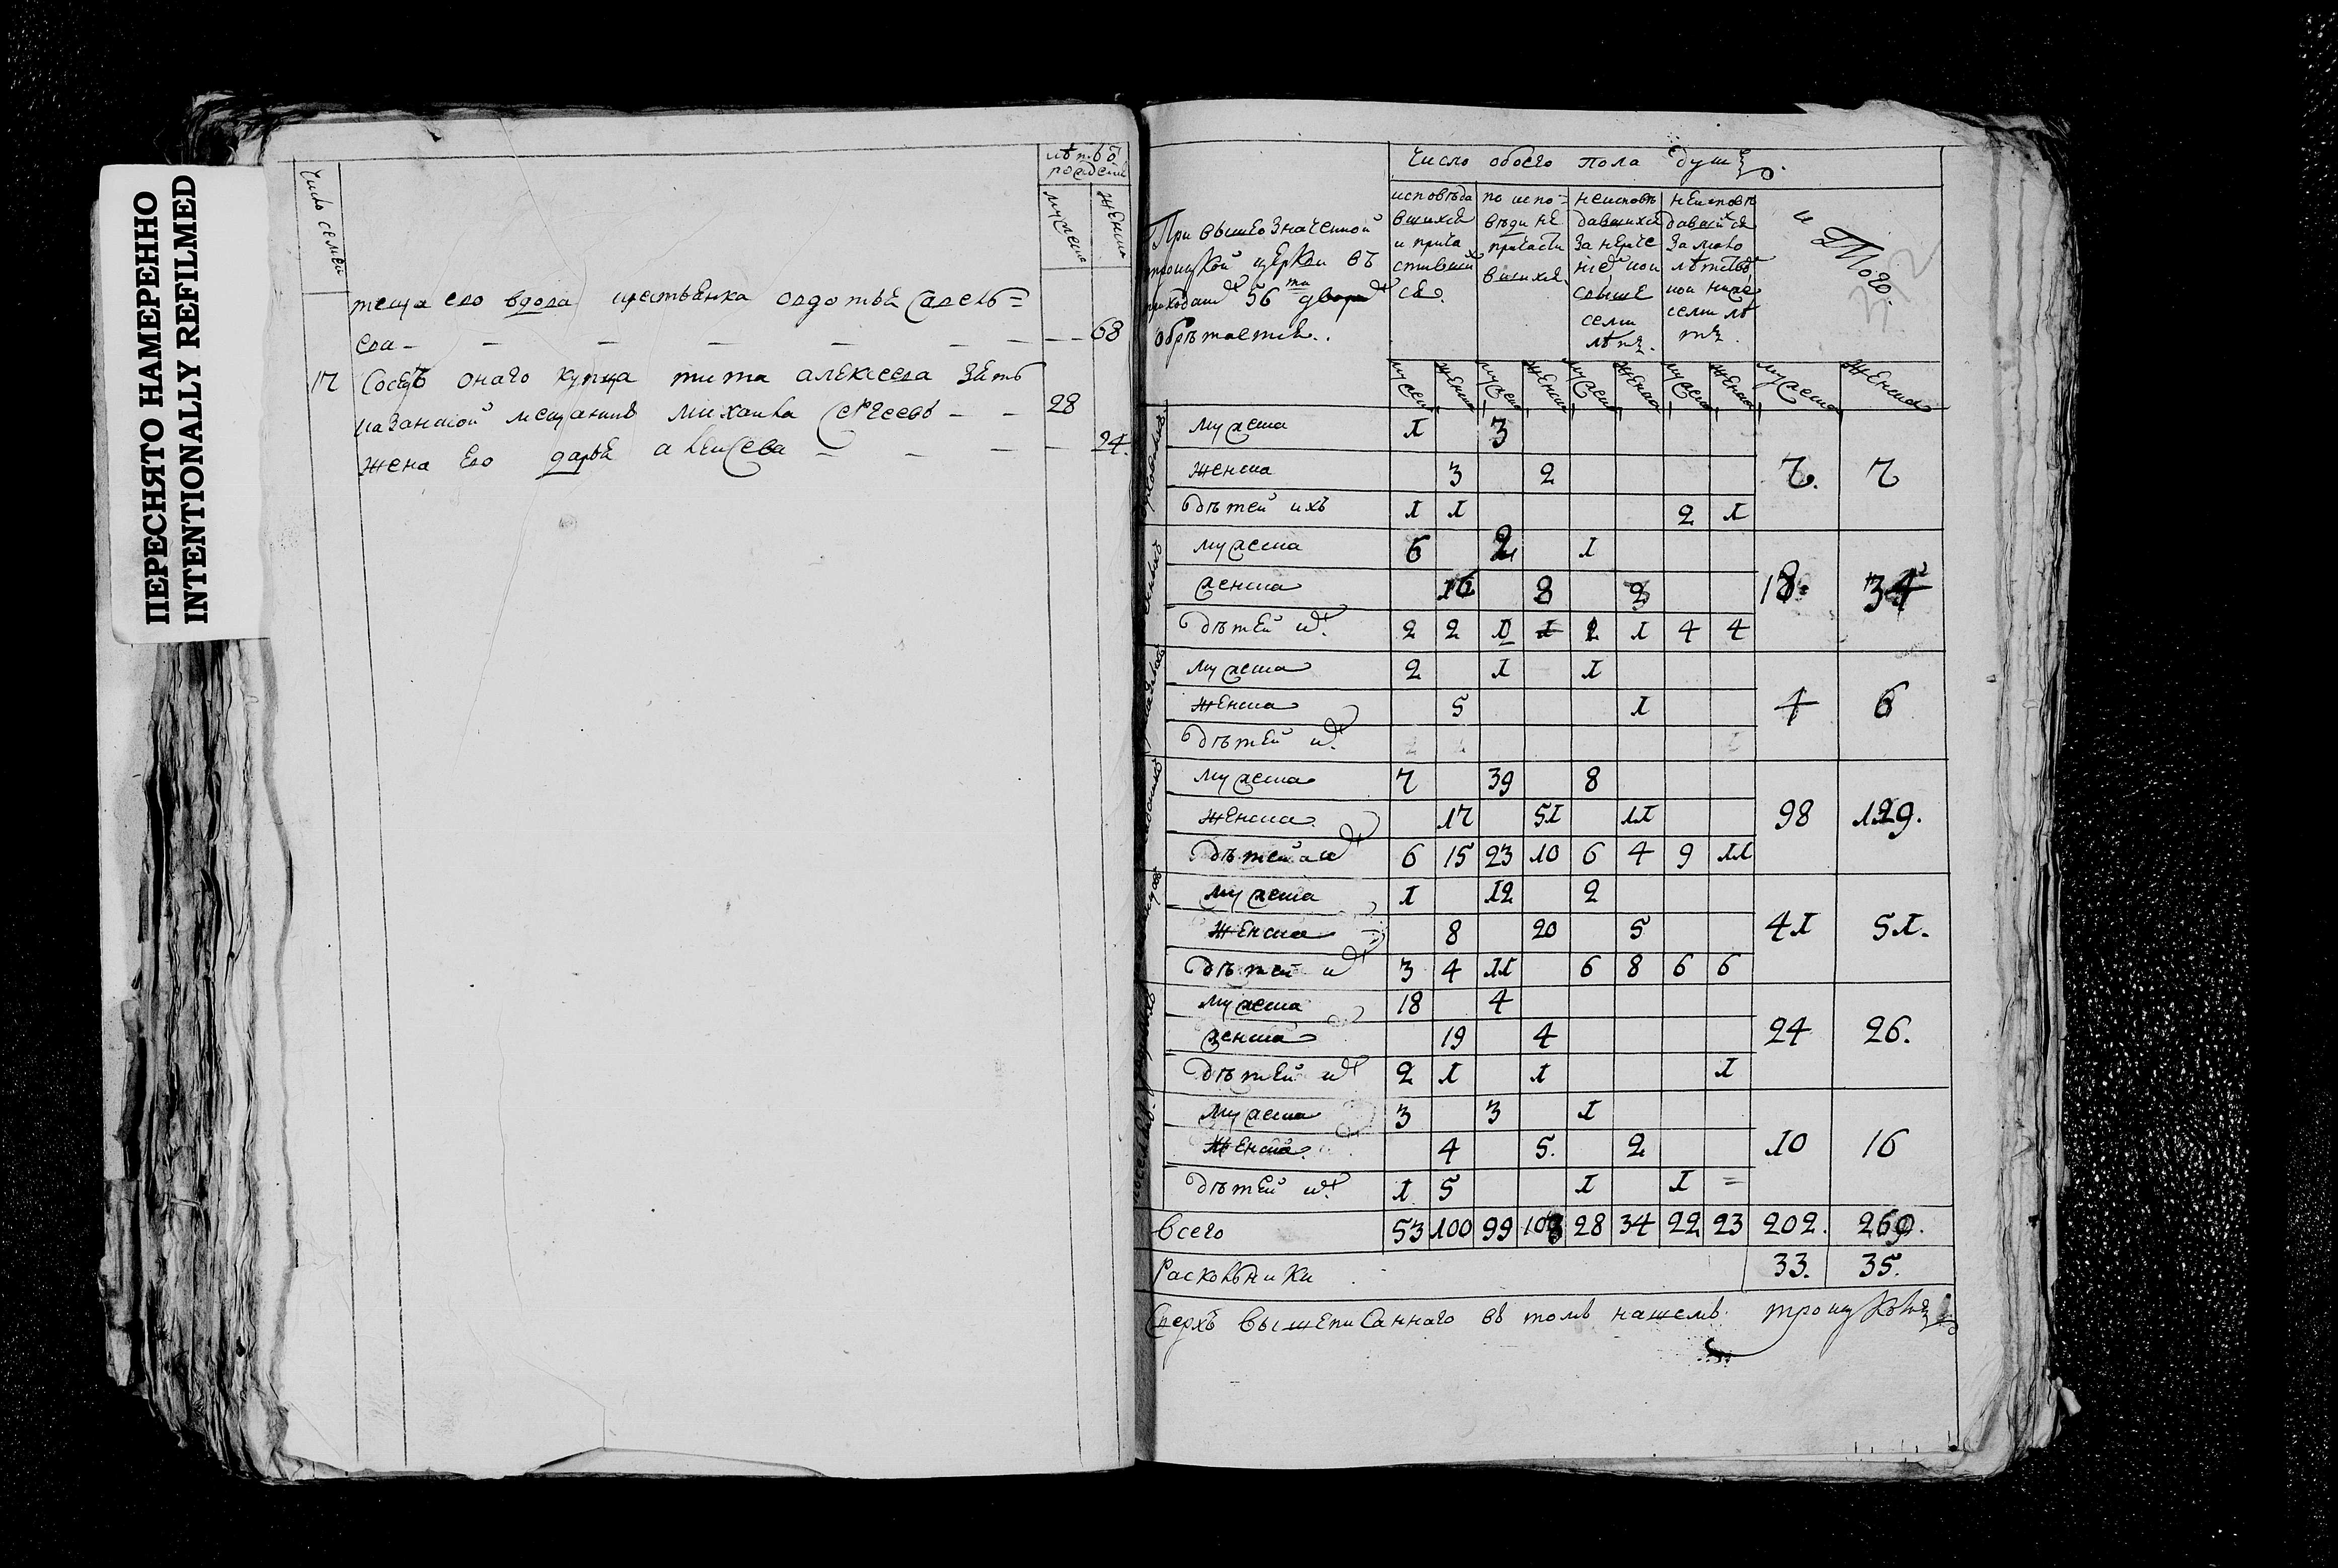 ПЕРЕСНЯТО НАМЕРЕННО
INTENTIONALLY REFILMED
число семей
лѣт ѿ рождени
мужеска
женска
теща его вдова крестьянка овдотья савель=
ева - - - - - - - 68
17 Сосѣдъ онаго купца тита алексеева зять
казанской мещанинъ михаила сергеевъ - - 28
жена его дарья алексеева - - - - 24.
При вышеозначенной троицкой церкви въ приходахъ 56ти дворахъ обрѣтается.
Число обоего пола душъ.
исповѣдавшихся и причастившихся.
по исповѣди не причастившихся
неисповѣдавшихся за нераченіемъ кои свыше семи лѣтъ.
неисповѣдавшихся за малолѣтствомъ кои ниже семи лѣтъ.
и Того.
мужеск женска мужеск женска мужеск женска мужеск женска мужеска женска
мужеска 1 3
женска 3 2 7. 7
дѣтей ихъ 1 1 2 1
мужеска 6 2 1
женска 16 8 18. 34
дѣтей их. 2 2 1 1 2 1 4 4
мужеска 2 1 1
женска 5 1 4 6
дѣтей их.
мужеска 7 39 8
женска 17 51 11 98 129.
дѣтей их 6 15 23 10 6 4 9 11
мужеска 1 12 2
женска 8 20 5 41 51.
дѣтей их 3 4 11 6 8 6 6
мужеска 18 4
женска 19 4 24 26.
дѣтей их 2 1 1 1
мужеска 3 3 1
женска 4 5. 2 10 16
дѣтей их. 1 5 1 1 =
всего 53 100 99 103 28 34 22 23 202. 269.
Расколники 33. 35.
Сверхъ вышеписаннаго въ томъ нашемъ троицкомъ